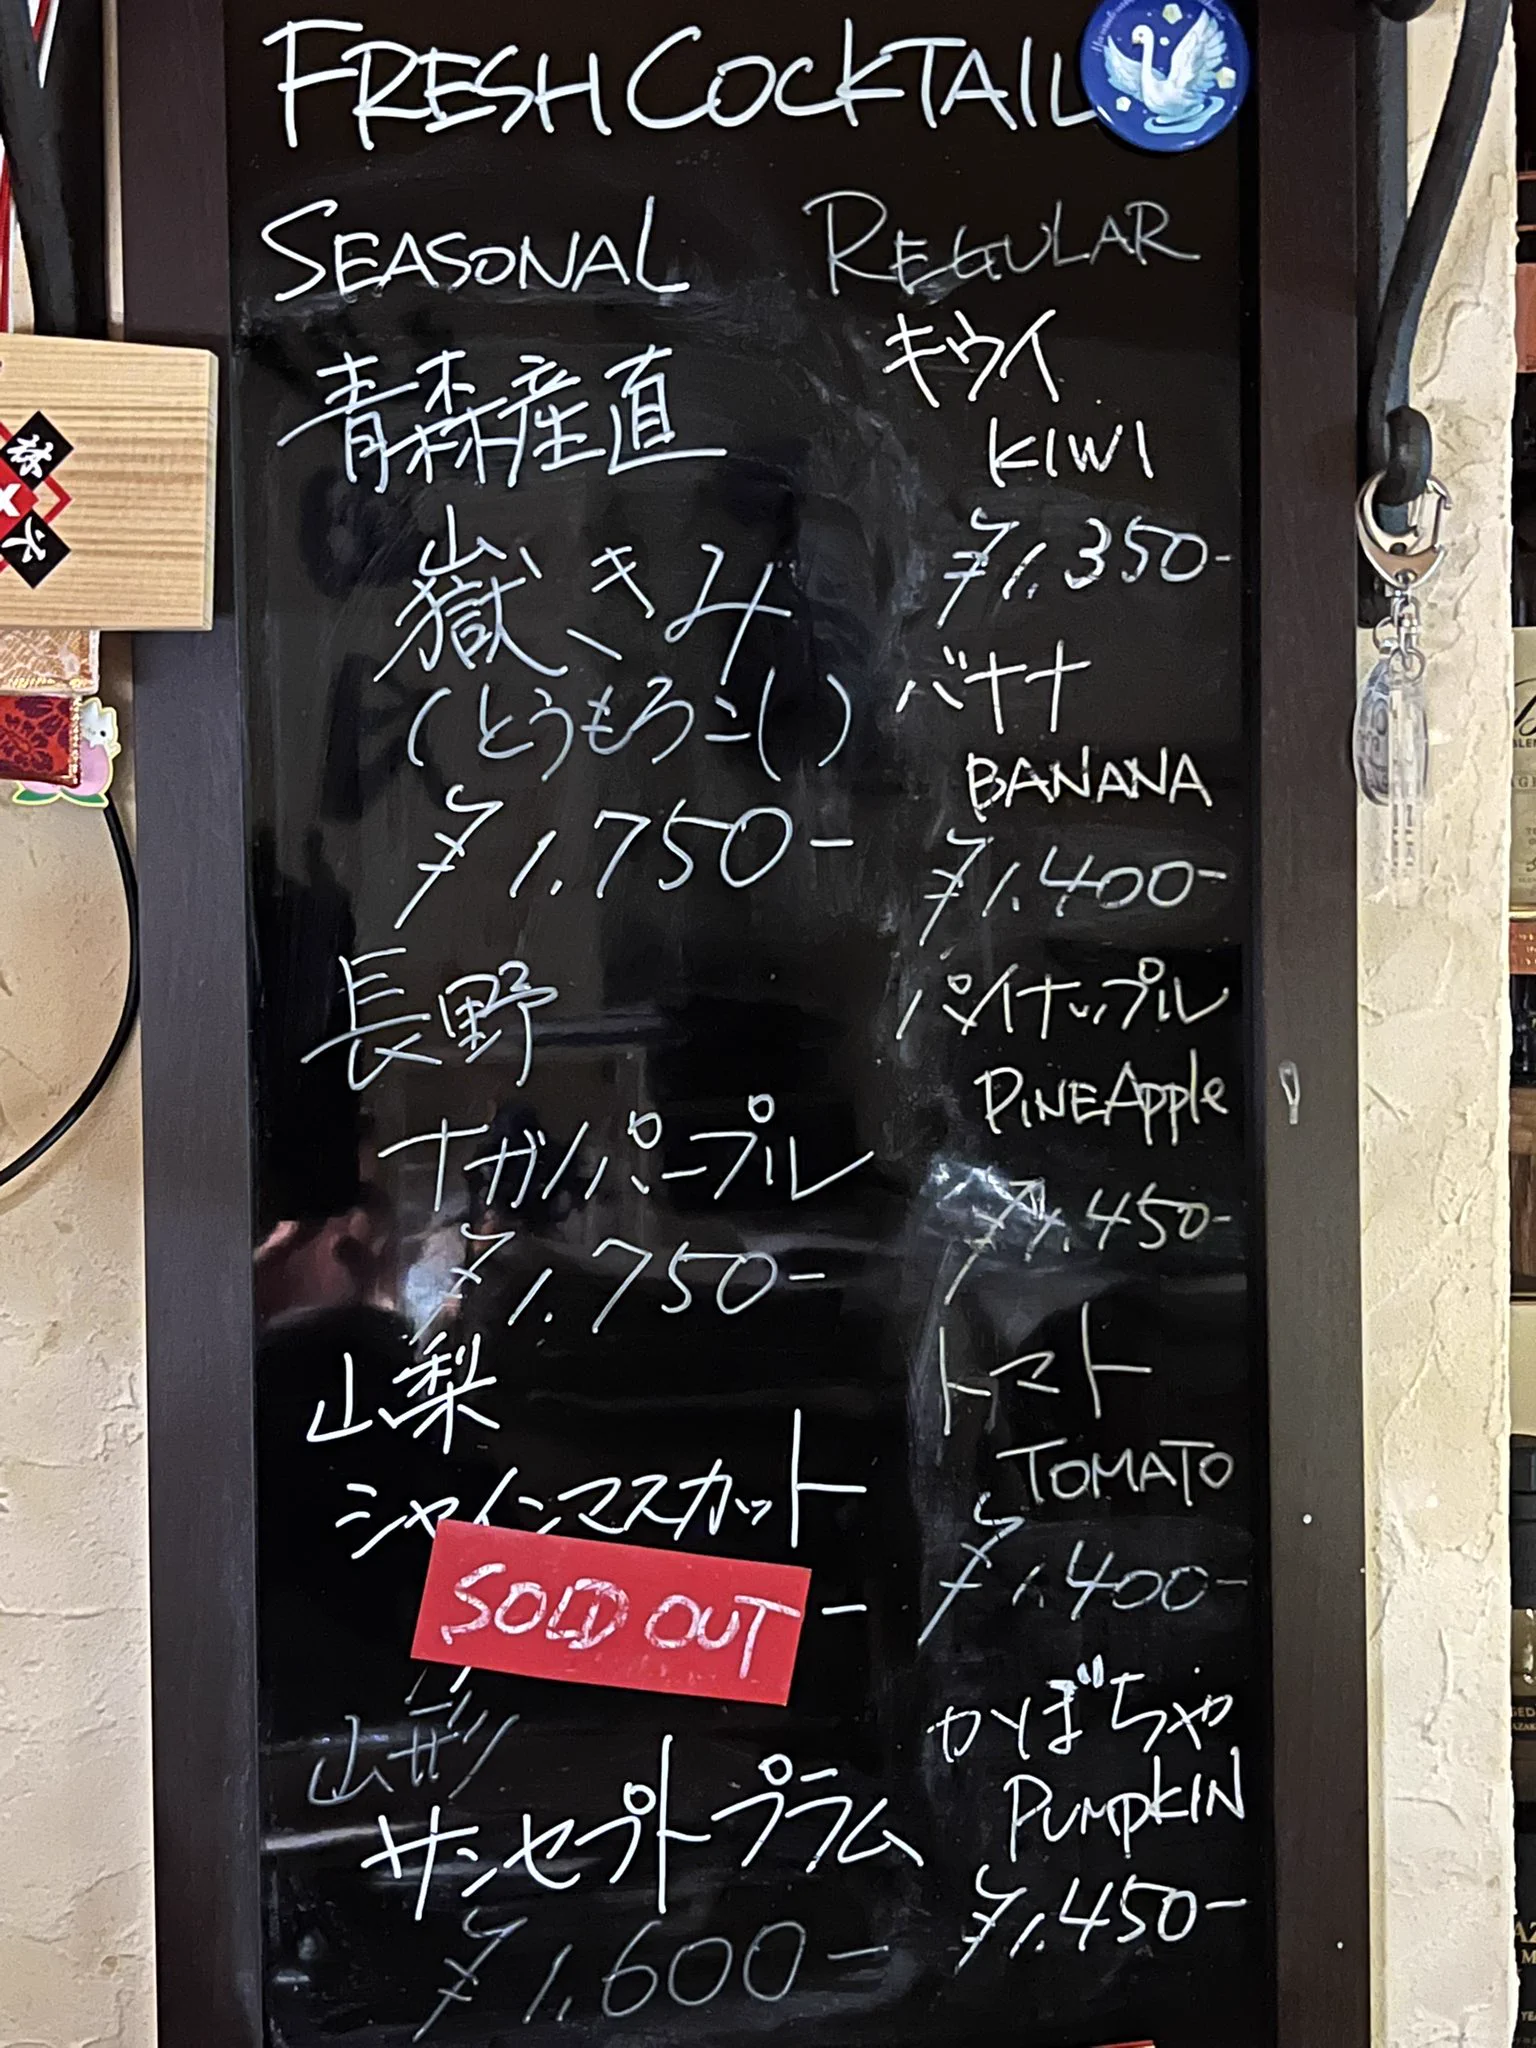 FRESH COCKTAIL
SEASONAL
青森産直
嶽きみ
(とうもろこし)
¥1,750-
長野
ナガノパープル
¥1,750-
山梨
シャインマスカット
SOLD OUT -
山形
サンセプトプラム
¥1,600-
REGULAR
キウイ
KIWI
¥1,350-
バナナ
BANANA
¥1,400-
パイナップル
PINEApple
¥1,450-
トマト
TOMATO
¥1,400-
かぼちゃ
PUMPKIN
¥1,450-